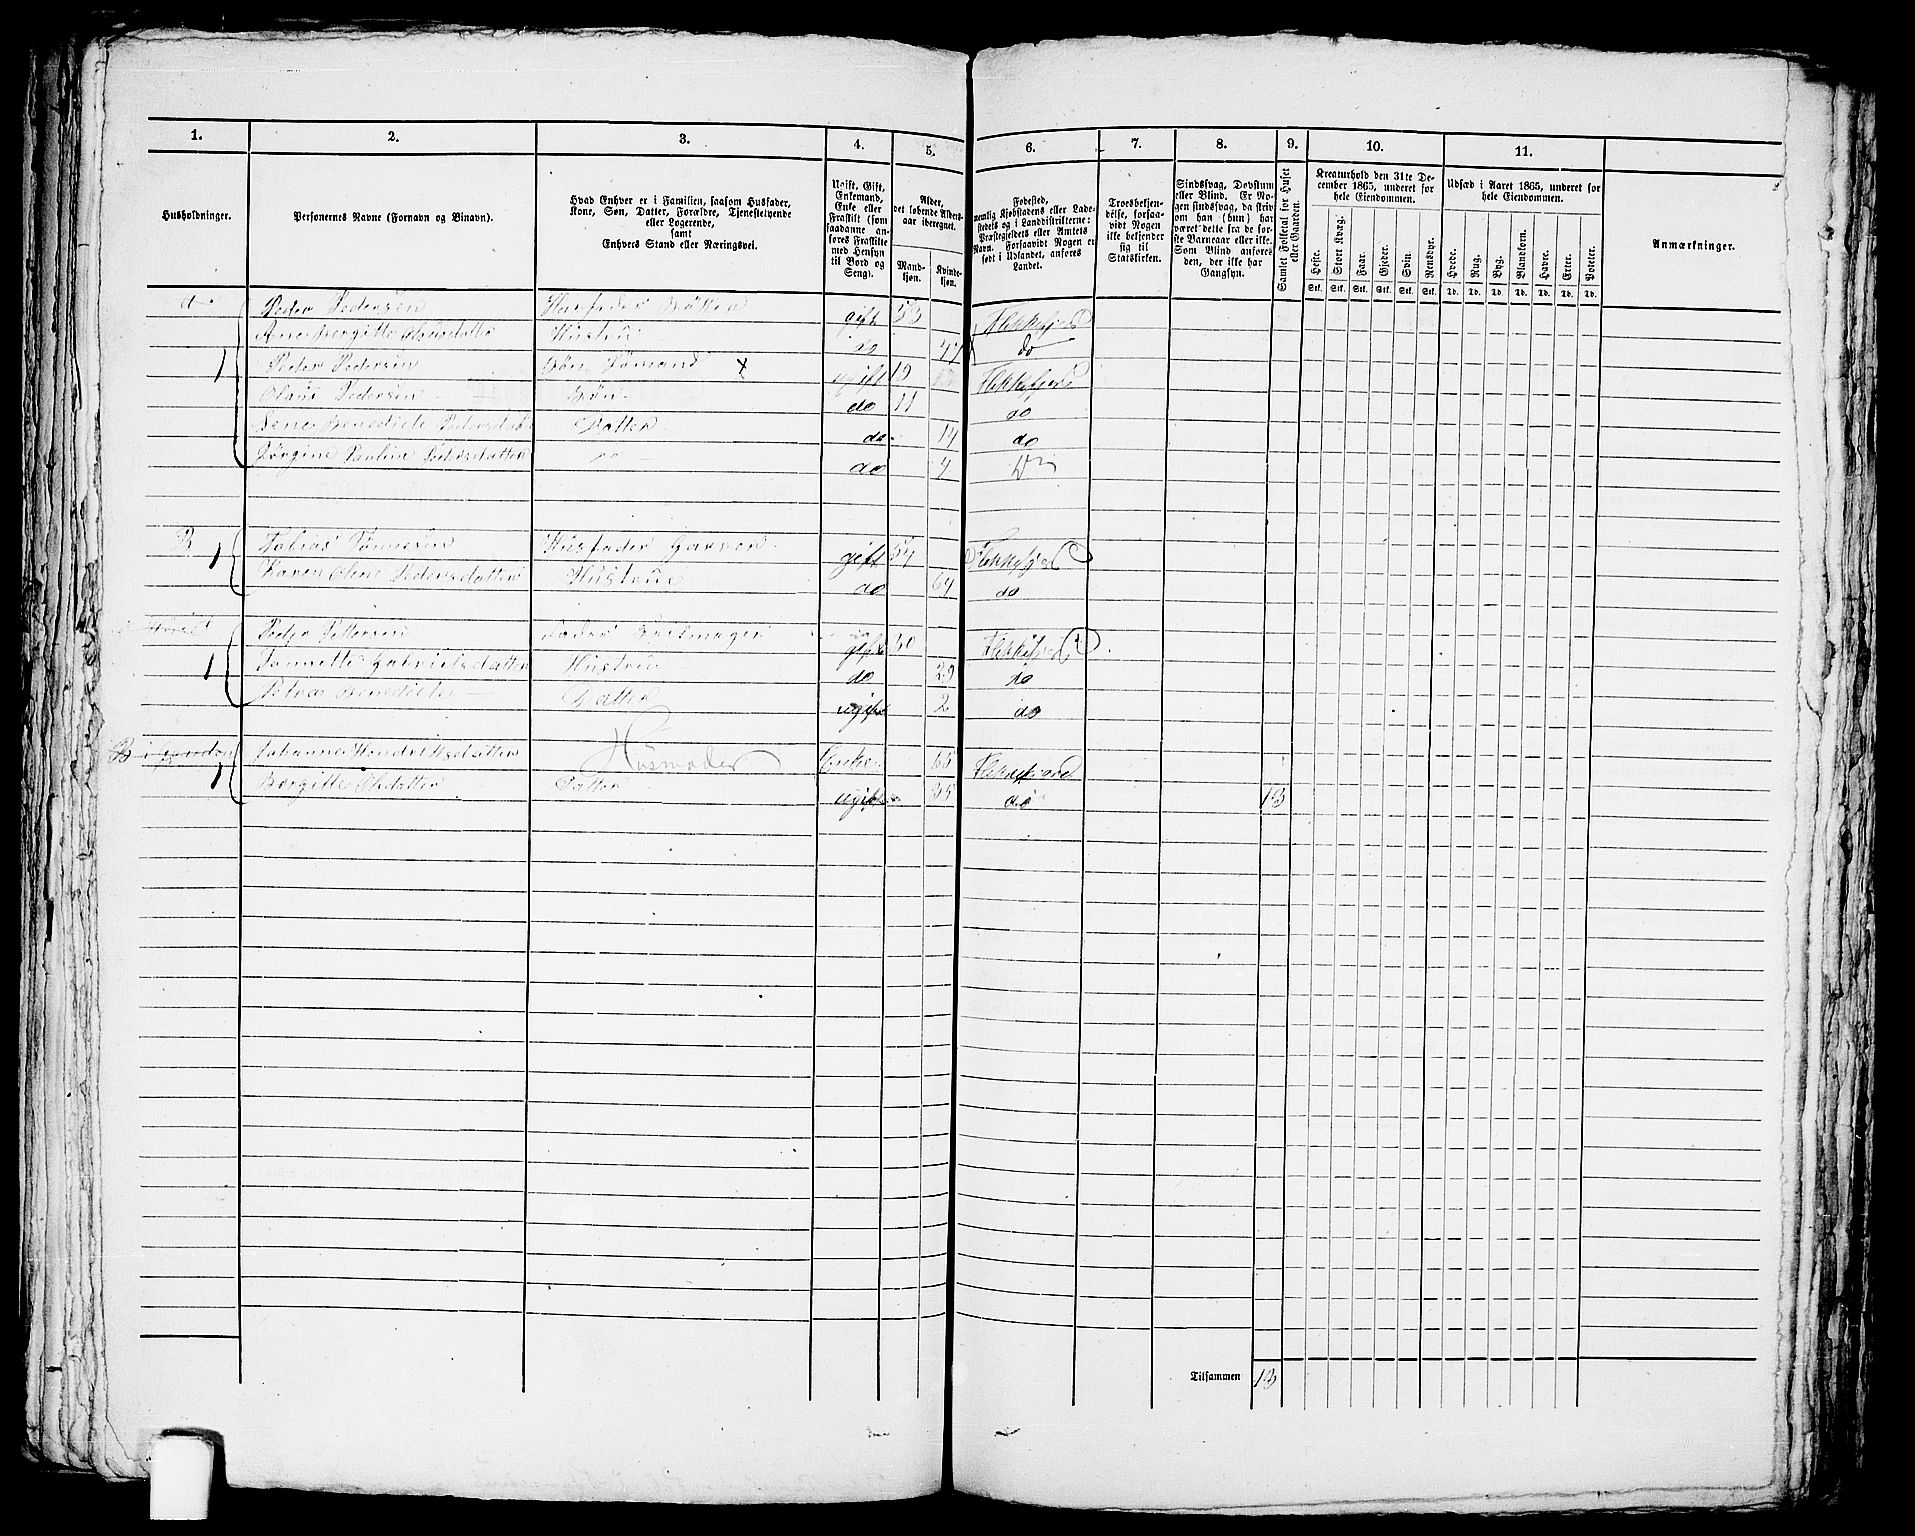 1. 2. 3. 4. 5. 6. 7. 8. 9. 10. 11.
Husholdninger.
Personernes Navne (Fornavn og Binavn).
Hvad Enhver er i Familien, saasom Husfader,
Kone, Søn, Datter, Forældre, Tjenestetyende
eller Logerende,
samt
Enhvers Stand eller Næringsvei.
Ugift, Gift,
Enkemand,
Enke eller
Fraskilt (som
saadanne an-
føres Fraskilte
med Hensyn
til Bord og
Seng).
Alder,
det løbende Alders-
aar iberegnet.
Mand-
kjøn.
Kvinde-
kjøn.
Fødested,
nemlig Kjøbstadens eller Lade-
stedets og i Landdistrikterne:
Præstegjeldets eller Amtets
Navn. Forsaavidt Nogen er
født i Udlandet, anføres
Landet.
Troesbekjen-
delse, forsaa-
vidt Nogen
ikke bekjender
sig til
Statskirken.
Sindssvag, Døvstum
eller Blind. Er No-
gen sindssvag, da skriv
om han (hun) har
været dette fra de før-
ste Barneaar eller ikke.
Som Blind anføres
den, der ikke har
Gangsyn.
Samlet Folketal for Huset
eller Gaarden.
Kreaturhold den 31te De-
cember 1865, underet for
hele Eiendommen.
Heste. Stort Kvæg. Faar. Gjeder. Svin. Rensdyr.
Stk. Stk. Stk. Stk. Stk. Stk.
Udsæd i Aaret 1865, underet for
hele Eiendommen.
Hvede. Rug. Byg. Blandkorn. Havre. Erter. Poteter.
Td. Td. Td. Td. Td. Td. Td.
Anmærkninger.
Peder Pedersen Husfader gift 53 Flekkefjord
Ane Bergitte Hustrue do 47 do
1 Peder Pedersen Søn Sømand x ugift 19 Flekkefjord
Olaus Pedersen Søn do 11 do
Benedicte Pedersdatter Datter do 14 do
Jørgine Pauline Pedersdatter do do 7 Do
1 Tobias Tønnesen Husfader Garver gift 54 Flekkefjord
Karen Oline Pedersdatter Hustrue do 64 do
Peder Pettersen gift 30 Flekkefjord
1 Tonnette Gabrielsdatter Hustrue do 29 do
Petrea Benedicte Datter ugift 2 do
Johanne Husmoder Enke 66
1 Bergitte Olsdatter Datter ugift 35 do 13
Tilsammen 13